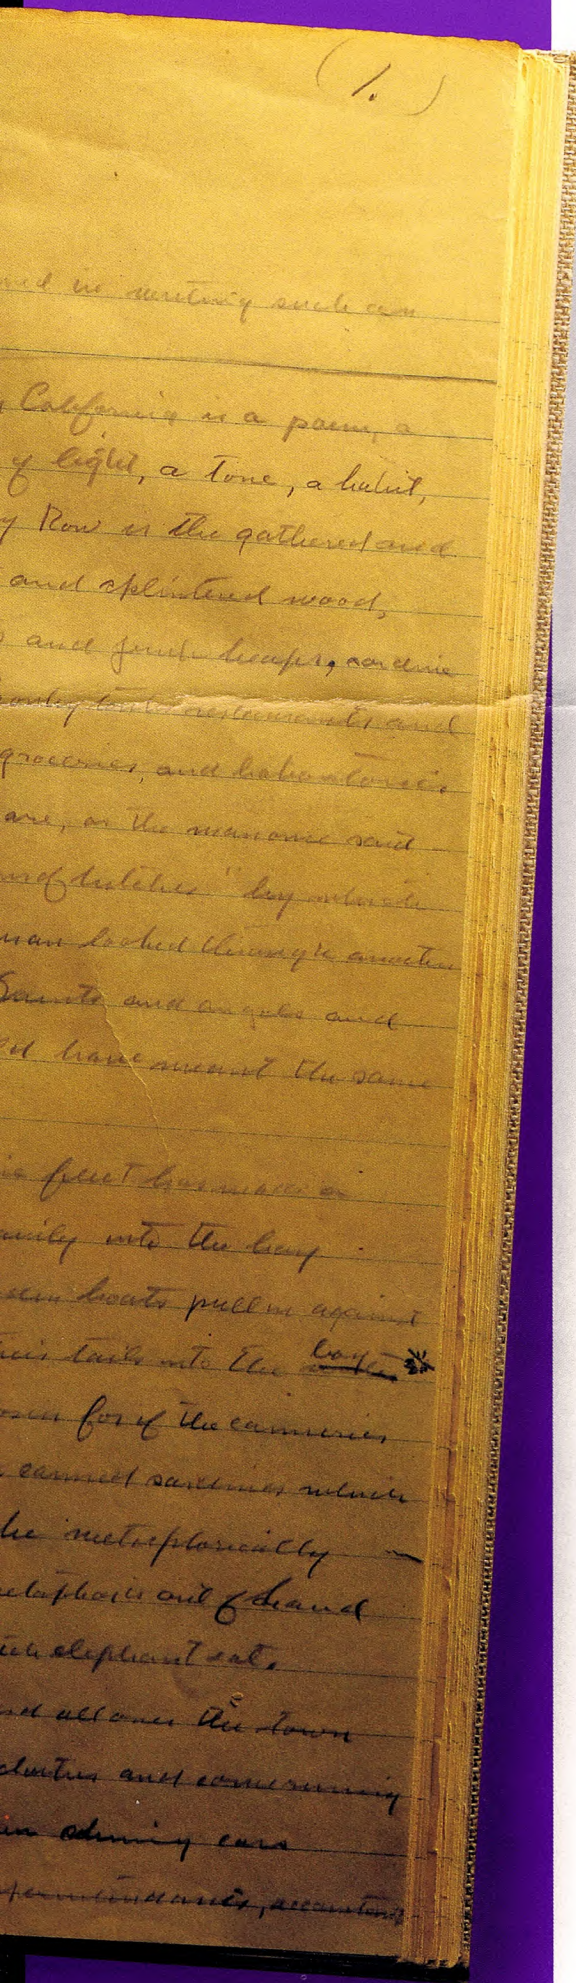 (1.)
ned in writing such an
California is a poem, a
of light, a tone, a habit,
y Row is the gathered and
and splintered wood,
s and junk heaps, sardine
restaurants and
groceries, and laboratories
are, as the man once said
by which
man looked through another
Saints and angels and
ld have meant the same
ne fleet has made a
avily into the bay
boats pull in against
eir tails into the bay
osen for if the canneries
canned sardines which
be metaphorically
etaphor is out of hand
elephant eat.
nd all over the town
clothes and come running
en shining cars
perintendants, accountants